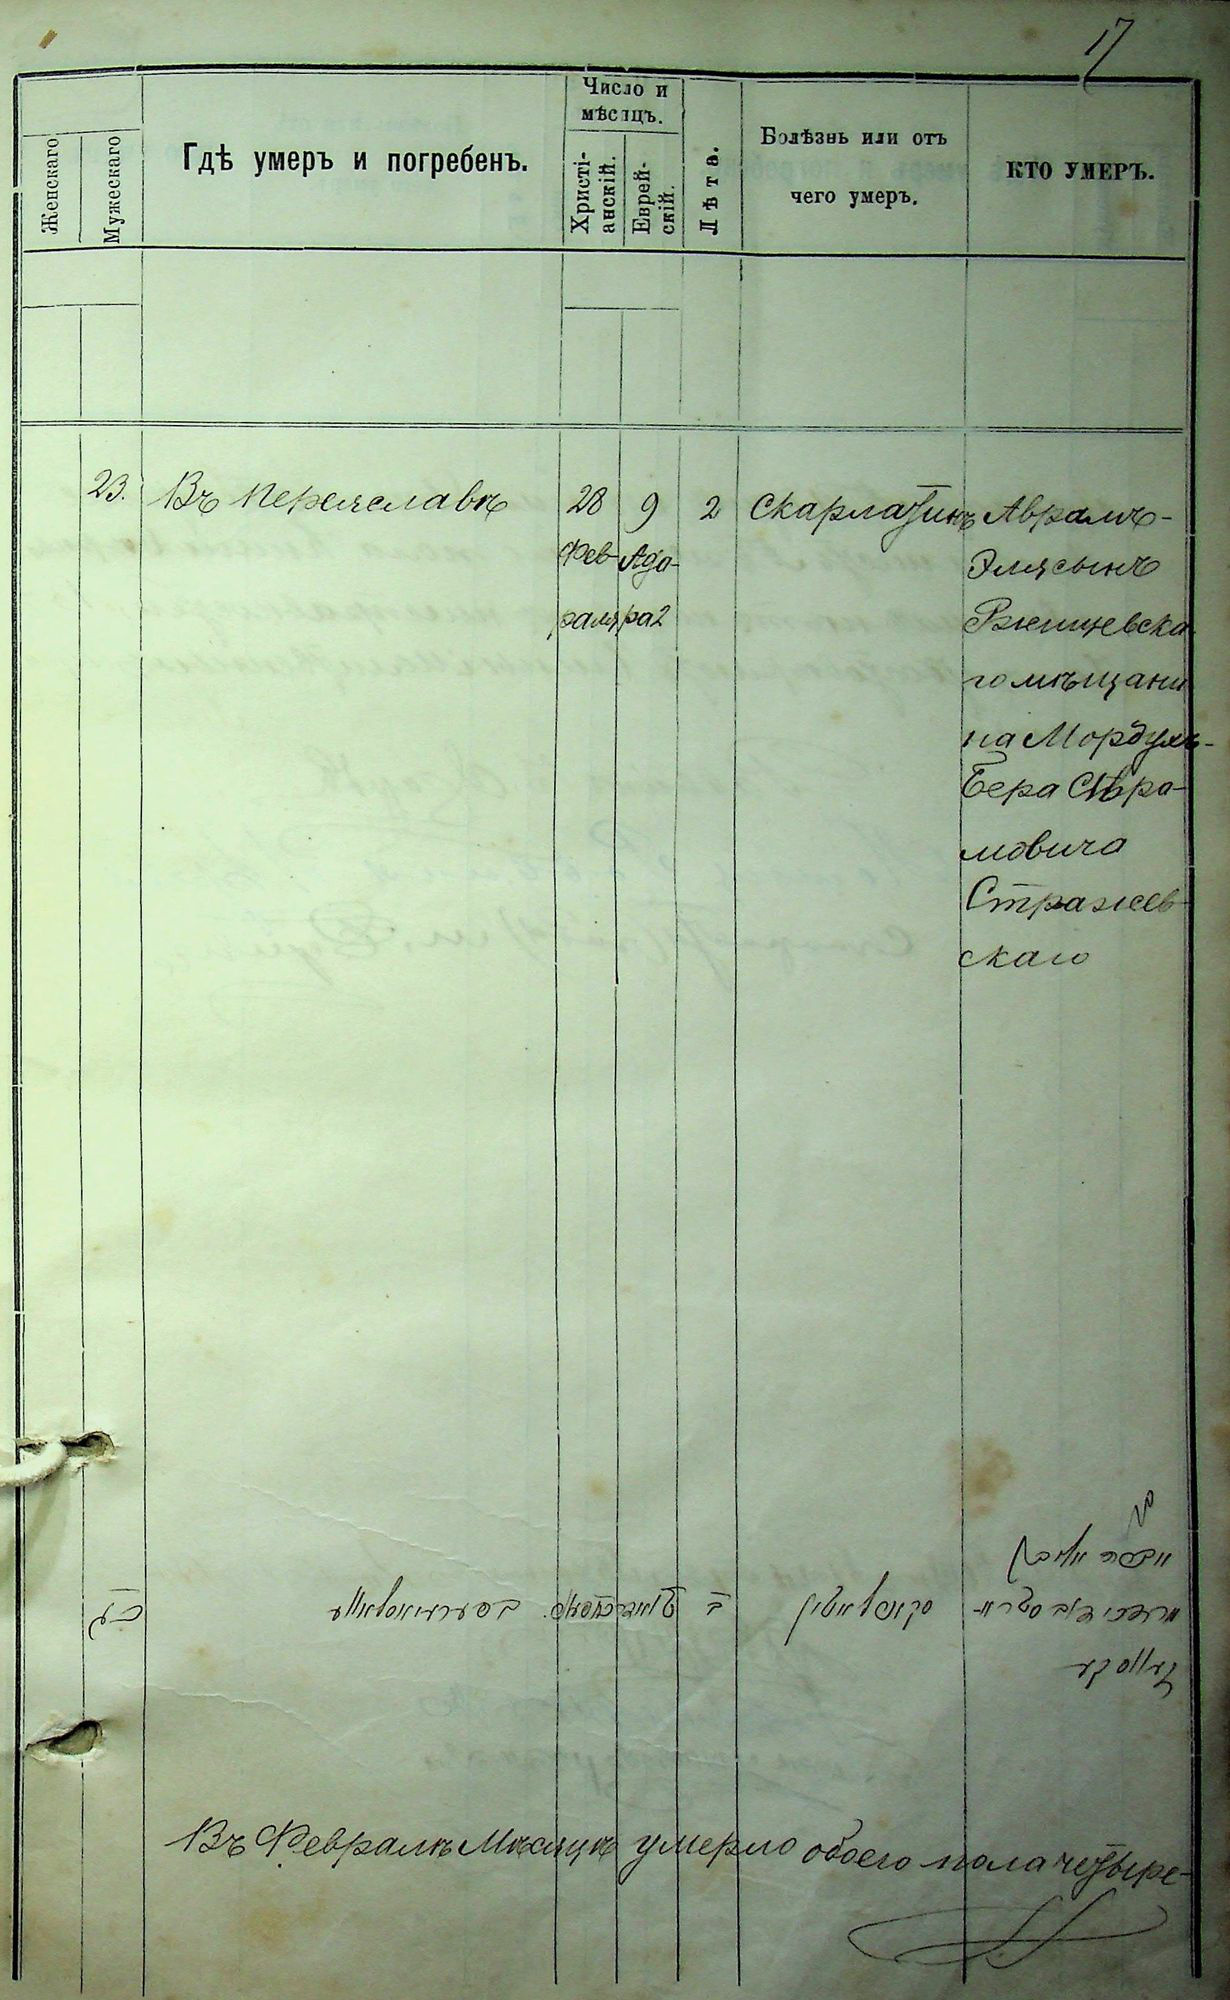 17
Женскаго
Мужескаго
Гдѣ умеръ и погребенъ.
Число и
мѣсяцъ.
Христі-
анскій.
Еврей-
скій.
Лѣта.
Болѣзнь или отъ
чего умеръ.
КТО УМЕРЪ.
23. Въ Переяславѣ 28 9 2 Скарлатинъ Аврамъ-
Фев- Ада- Эля сынъ
раля ра 2 Ржищевска
го мѣщани
на Мордухъ-
Бера Сѣра-
мовича
Стражев-
скаго
Въ Февралѣ Мѣсяцѣ умерло обоего пола четыре-